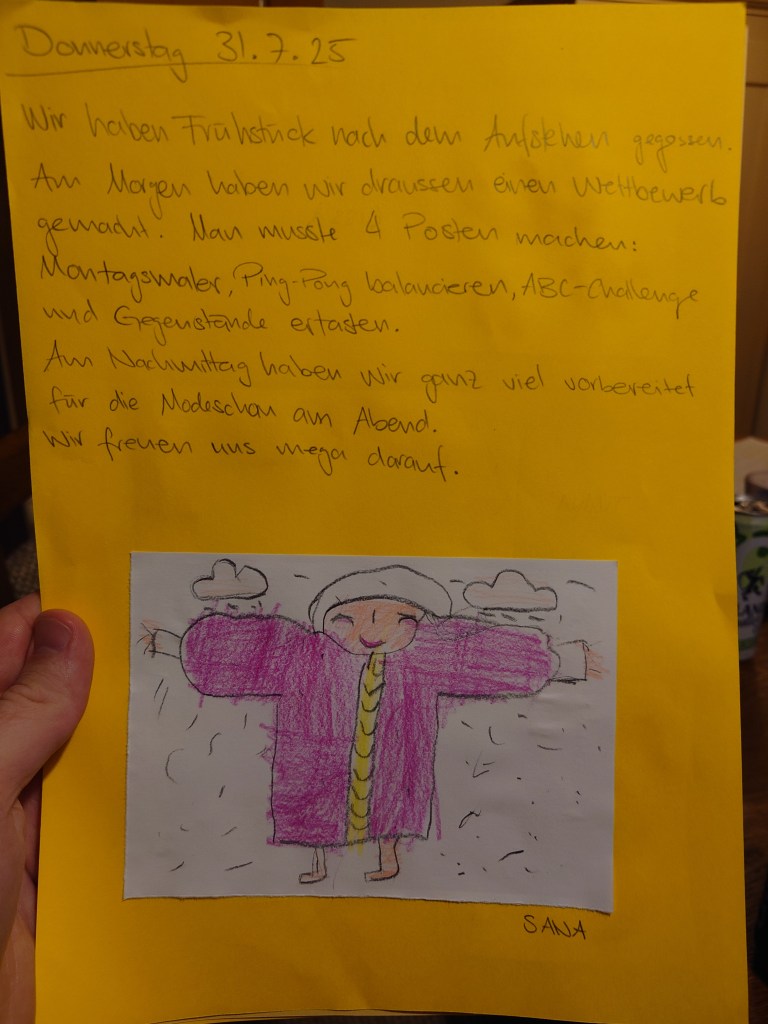 Donnerstag 31.7.25
Wir haben Frühstück nach dem Aufstehen gegossen.
Am Morgen haben wir draussen einen Wettbewerb
gemacht. Man musste 4 Posten machen:
Montagsmaler, Ping-Pong balancieren, ABC-Challenge
und Gegenstände ertasten.
Am Nachmittag haben wir ganz viel vorbereitet
für die Modeschau am Abend.
Wir freuen uns mega darauf.
SANA